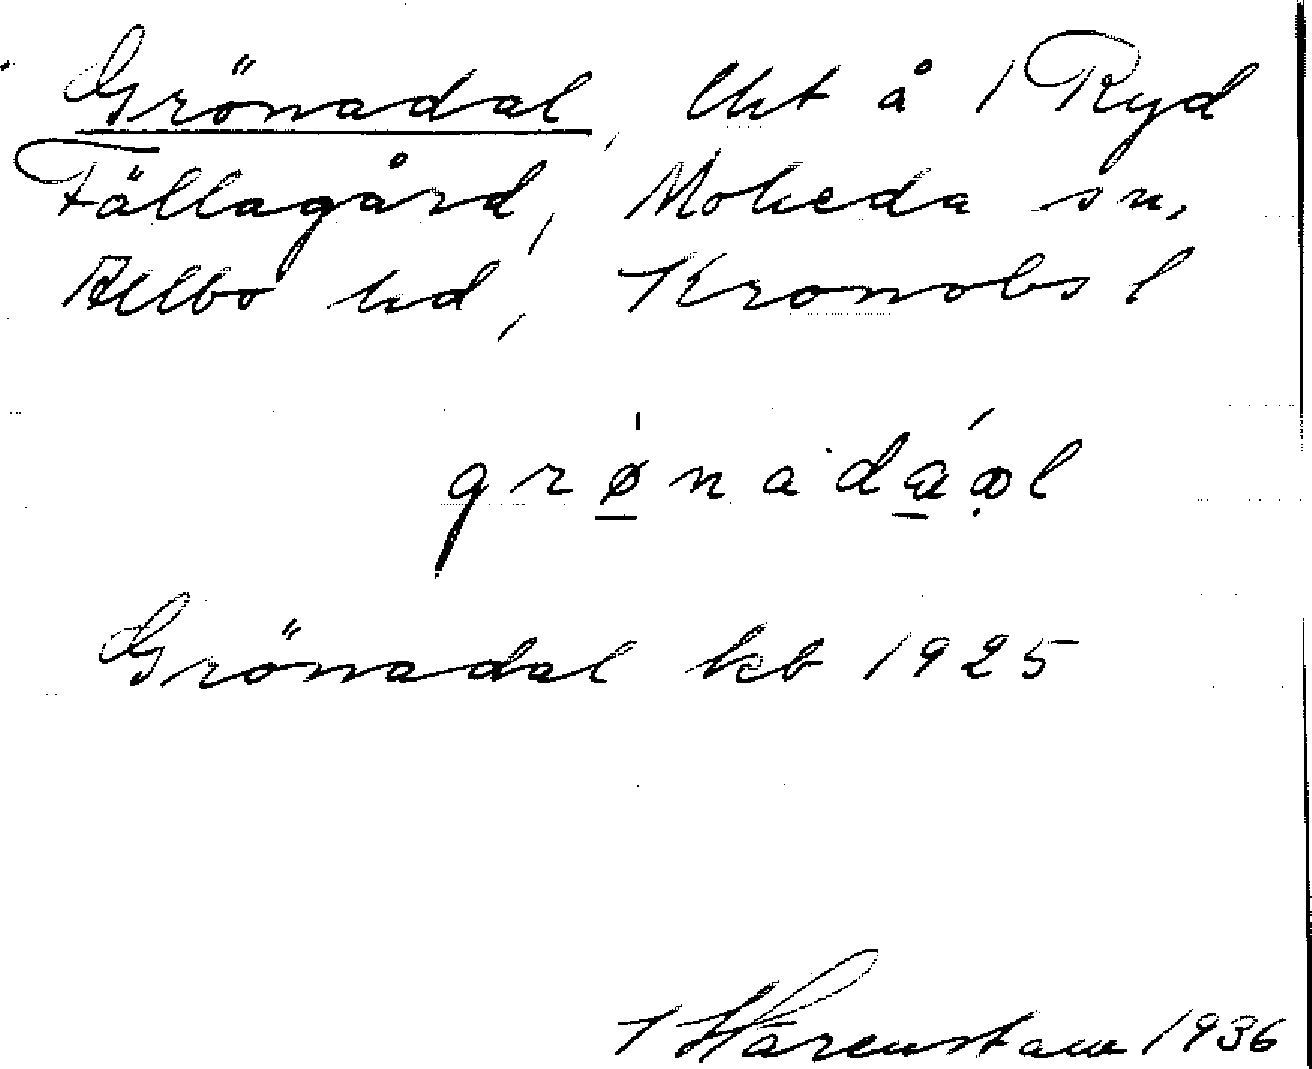 Grönadal, lht å 1 Ryd
Fällagård, Moheda sn,
Allbo hd, Kronobs l
grønadáal
Grönadal kb 1925
T Härenstam 1936